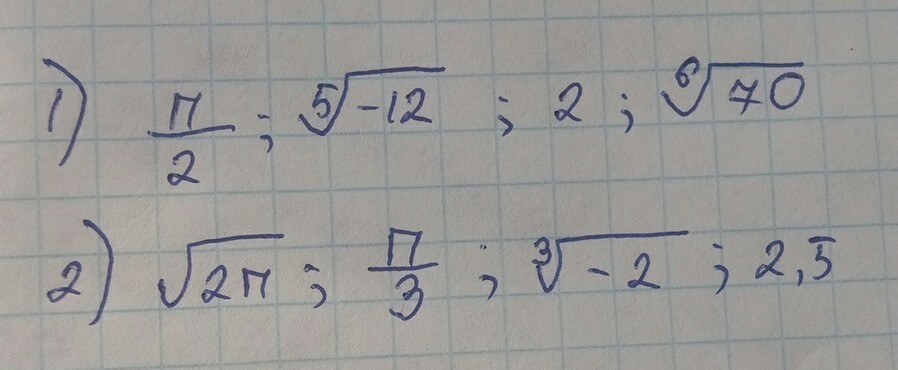 1) π/2 ; ⁵√-12 ; 2 ; ⁶√70
2) √2π ; π/3 ; ³√-2 ; 2,5